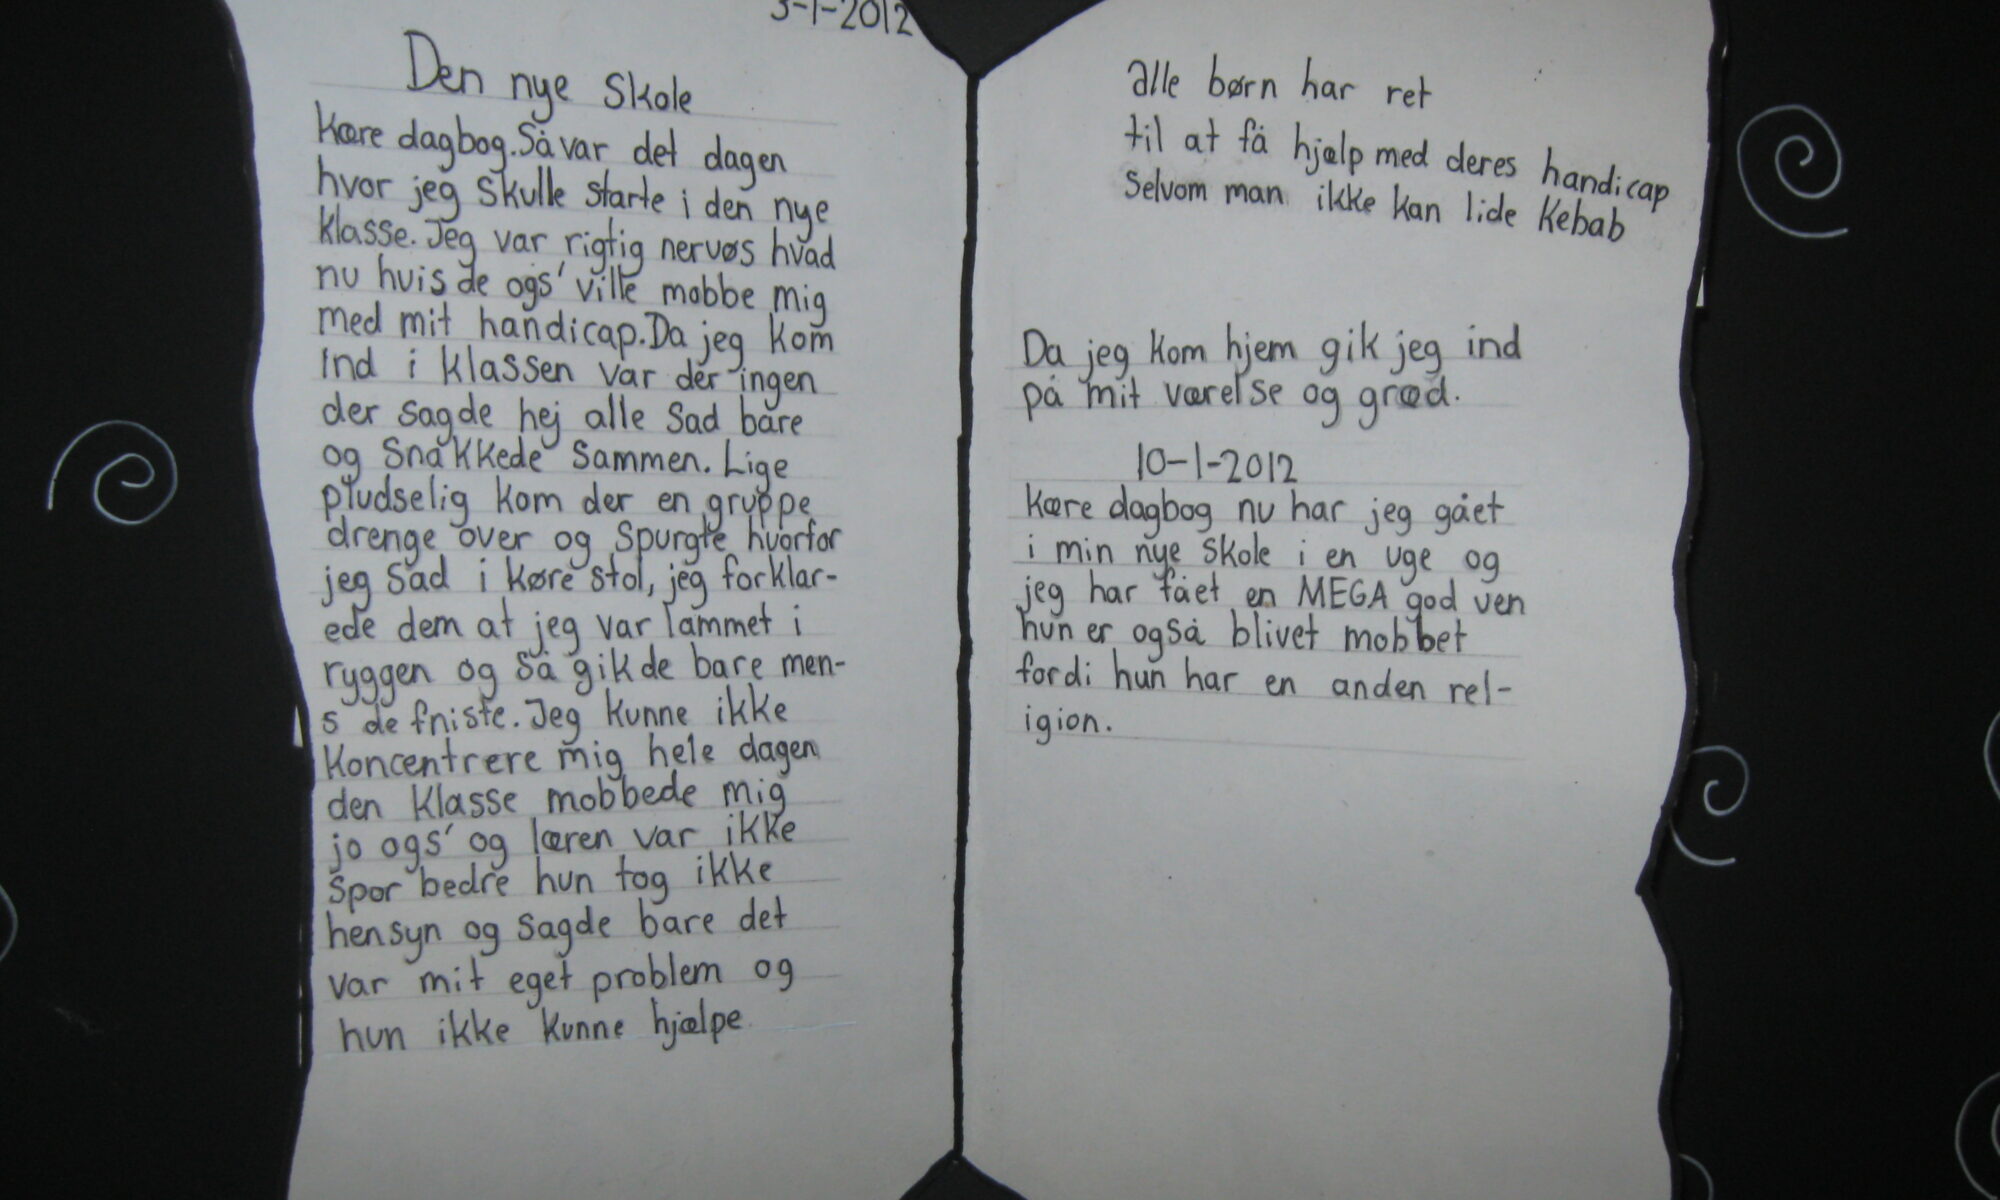 3-1-2012
Den nye Skole
Kære dagbog. Så var det dagen
hvor jeg skulle starte i den nye
klasse. Jeg var rigtig nervøs hvad
nu hvis de ogs' ville mobbe mig
med mit handicap. Da jeg kom
ind i klassen var der ingen
der sagde hej alle sad bare
og snakkede sammen. Lige
pludselig kom der en gruppe
drenge over og spurgte hvorfor
jeg sad i køre stol, jeg forklar-
ede dem at jeg var lammet i
ryggen og så gik de bare men-
s de fniste. Jeg kunne ikke
koncentrere mig hele dagen
den klasse mobbede mig
jo ogs' og læren var ikke
spor bedre hun tog ikke
hensyn og sagde bare det
var mit eget problem og
hun ikke kunne hjælpe
alle børn har ret
til at få hjælp med deres handicap
selvom man ikke kan lide Kebab
Da jeg kom hjem gik jeg ind
på mit værelse og græd.
10-1-2012
Kære dagbog nu har jeg gået
i min nye skole i en uge og
jeg har fået en MEGA god ven
hun er også blivet mobbet
fordi hun har en anden rel-
igion.